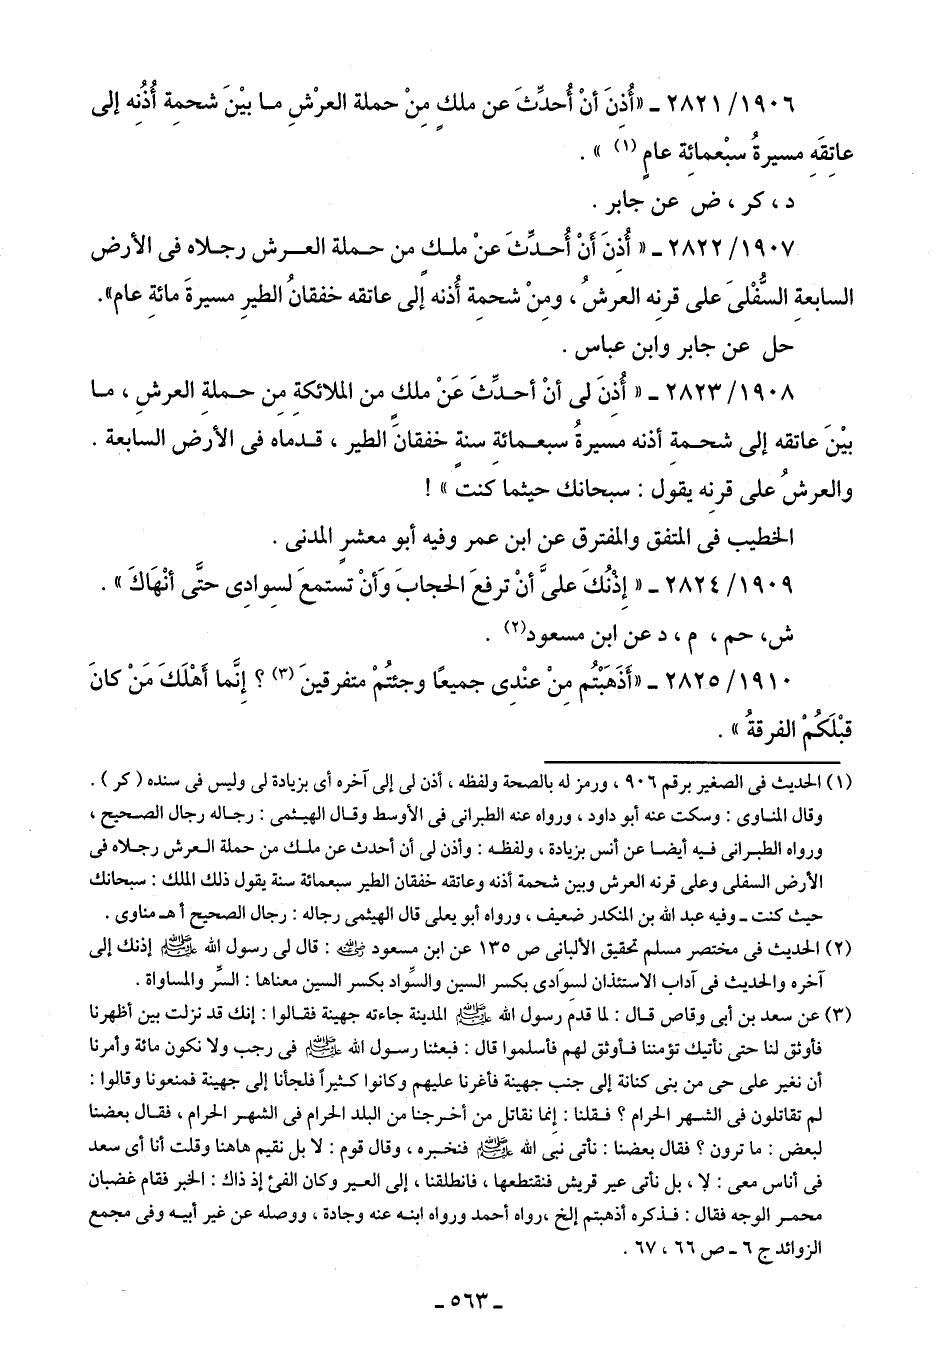 ٢٨٢١/١٩٠٦ ـ «أُذِنَ أنْ أُحدِّثَ عن ملكٍ مِنْ حملة العرْشِ مـا بيْنَ شحمةِ أُذُنه إلى
عاتِقَهِ مسيرةُ سبْعمائِة عامٍ (١) » .
د ، كر ، ض عن جابر .
٢٨٢٢/١٩٠٧ ـ « أُذِنَ أَنْ أُحـدِّثَ عنْ ملـكٍ من حـملة العـرش رجـلاه فى الأرض
السابعة السُّفْلىَ على قرنِه العرشُ ، ومِنْ شحمة أُذنه إلى عاتقه خفقانُ الطيرِ مسيرةَ مائةِ عام».
حل عن جابر وابن عباس .
٢٨٢٣/١٩٠٨ ـ « أُذِنَ لى أنْ أحـدِّثَ عَنْ ملكٍ من الملائكةِ من حـملةِ العرش ، مـا
بيْنَ عاتقه إلى شحـمةِ أذنه مسيرةُ سبعـمائة سنةٍ خفقانَ الطيرِ ، قـدماه فى الأرض السابعة .
والعرشُ على قرنِه يقول : سبحانك حيثما كنت » !
الخطيب فى المتفق والمفترق عن ابن عمر وفيه أبو معشرٍ المدنى .
٢٨٢٤/١٩٠٩ ـ « إذْنُكَ علىَّ أنْ ترفعَ الحجابَ وَأنْ تستمعَ لسِوادِى حتَّى أنْهَاكَ » .
ش، حم ، م ، د عن ابن مسعود(٢) .
٢٨٢٥/١٩١٠ ـ «أَذَهَبْتُم مِنْ عنْدِى جميعًا وجئتُمْ متفرقينَ (٣) ؟ إنَّما أهْلَكَ مَنْ كانَ
قبْلَكُمْ الفرقةُ » .
(١) الحديث فى الصغير برقم ٩٠٦ ، ورمز له بالصحة ولفظه ، أذن لى إلى آخره أى بزيادة لى وليس فى سنده ( كر ) .
وقال المنـاوى : وسكت عنه أبو داود ، ورواه عنه الطبرانى فى الأوسط وقال الهيثمى : رجـاله رجال الصـحيح ،
ورواه الطبـرانى فـيه أيضـا عن أنس بزيادة ، ولفظـه : وأذن لى أن أحدث عن ملـك من حملة العـرش رجـلاه فى
الأرض السفلى وعلى قرنه العرش وبين شحمة أذنه وعاتقه خفقان الطير سبعمائة سنة يقول ذلك الملك : سبحانك
حيث كنت ـ وفيه عبد الله بن المنكدر ضعيف ، ورواه أبو يعلى قال الهيثمى رجاله : رجال الصحيح أ هـ مناوى .
(٢) الحديث فى مختصر مسلم تحقيق الألبانى ص ١٣٥ عن ابن مسعود رضي الله عنه : قال لى رسول الله ﷺ إذنك إلى
آخره والحديث فى آداب الاستئذان لسِوَادى بكسر السين والسِّواد بكسر السين معناها : السِّر والمساواة .
(٣) عن سعد بن أبى وقاص قـال : لما قدم رسول الله ﷺ المدينة جاءته جهينة فقـالوا : إنك قد نزلت بين أظهرنا
فأوثق لنا حتى نأتيك تؤمننا فـأوثق لهم فأسلموا قال : فبعثنا رسـول الله ﷺ فى رجب ولا نكون مائة وأمرنا
أن نغير على حى من بنى كنانة إلى جنب جهينة فأغرنا عليهم وكانوا كـثيراً فلجأنا إلى جهينة فمنعونا وقالوا :
لم تقاتلون فى الشـهر الحرام ؟ فـقلنا : إنما نقاتل من أخـرجنا من البلد الحرام فى الشهـر الحرام ، فقـال بعضنا
لبعض : ما ترون ؟ فقال بعضنا : نأتى نبى الله ﷺ فنخبره ، وقال قوم : لا بل نقيم هاهنا وقلت أنا أى سعد
فى أناس معى : لا ، بل نأتى عير قريش فنقتطعها ، فانطلقنا ، إلى العير وكان الفئ إذ ذاك : الخبر فقام غضبان
محمـر الوجه فقال : فـذكره أذهبتم إلخ ،رواه أحمد ورواه ابنـه عنه وجادة ، ووصله عن غير أبيـه وفى مجمع
الزوائد ج ٦ ـ ص ٦٦ ، ٦٧ .
ـ ٥٦٣ ـ